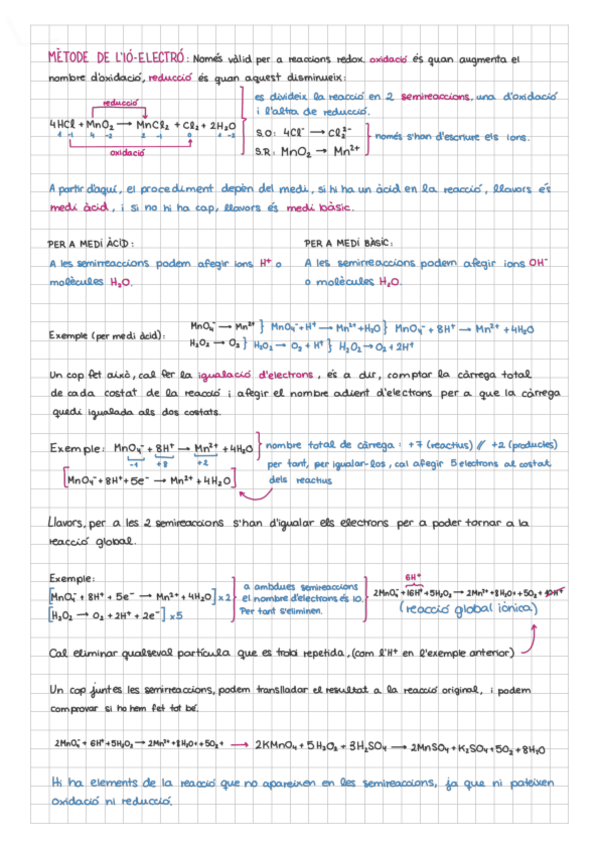 MÈTODE DE L'IÓ-ELECTRÓ: Només vàlid per a reaccions redox. oxidació és quan augmenta el
nombre d'oxidació, reducció és quan aquest disminueix:
reducció
4HCl + MnO₂ → MnCl₂ + Cl₂ + 2H₂O
1 -1 4 -2 2 -1 0 1 -2
oxidació
es divideix la reacció en 2 semireaccions, una d'oxidació
i l'altra de reducció.
S.O: 4Cl⁻ → Cl₂²⁻
S.R: MnO₂ → Mn²⁺
només s'han d'escriure els ions.
A partir d'aquí, el procediment depèn del medi, si hi ha un àcid en la reacció, llavors és
medi àcid, i si no hi ha cap, llavors és medi bàsic.
PER A MEDI ÀCID:
A les semirreaccions podem afegir ions H⁺ o
molècules H₂O.
PER A MEDI BÀSIC:
A les semirreaccions podem afegir ions OH⁻
o molècules H₂O.
Exemple (per medi àcid):
MnO₄⁻ → Mn²⁺ } MnO₄⁻ + H⁺ → Mn²⁺ + H₂O } MnO₄⁻ + 8H⁺ → Mn²⁺ + 4H₂O
H₂O₂ → O₂ } H₂O₂ → O₂ + H⁺ } H₂O₂ → O₂ + 2H⁺
Un cop fet això, cal fer la igualació d'electrons, és a dir, comptar la càrrega total
de cada costat de la reacció i afegir el nombre adient d'electrons per a que la càrrega
quedi igualada als dos costats.
Exemple: MnO₄⁻ + 8H⁺ → Mn²⁺ + 4H₂O
-1 +8 +2
[MnO₄⁻ + 8H⁺ + 5e⁻ → Mn²⁺ + 4H₂O]
nombre total de càrrega: +7 (reactius) // +2 (productes)
per tant, per igualar-los, cal afegir 5 electrons al costat
dels reactius
Llavors, per a les 2 semireaccions s'han d'igualar els electrons per a poder tornar a la
reacció global.
Exemple:
[MnO₄⁻ + 8H⁺ + 5e⁻ → Mn²⁺ + 4H₂O] x2
[H₂O₂ → O₂ + 2H⁺ + 2e⁻] x5
a ambdues semireaccions
el nombre d'electrons és 10.
Per tant s'eliminen.
6H⁺
2MnO₄⁻ + 16H⁺ + 5H₂O₂ → 2Mn²⁺ + 8H₂O + 5O₂ + 10H⁺
(reacció global iònica)
Cal eliminar qualsevol partícula que es trobi repetida, (com l'H⁺ en l'exemple anterior)
Un cop juntes les semirreaccions, podem transllador el resultat a la reacció original, i podem
comprovar si ho hem fet tot bé.
2MnO₄⁻ + 6H⁺ + 5H₂O₂ → 2Mn²⁺ + 8H₂O + 5O₂ + → 2KMnO₄ + 5H₂O₂ + 3H₂SO₄ → 2MnSO₄ + K₂SO₄ + 5O₂ + 8H₂O
Hi ha elements de la reacció que no apareixen en les semireaccions, ja que ni pateixen
oxidació ni reducció.